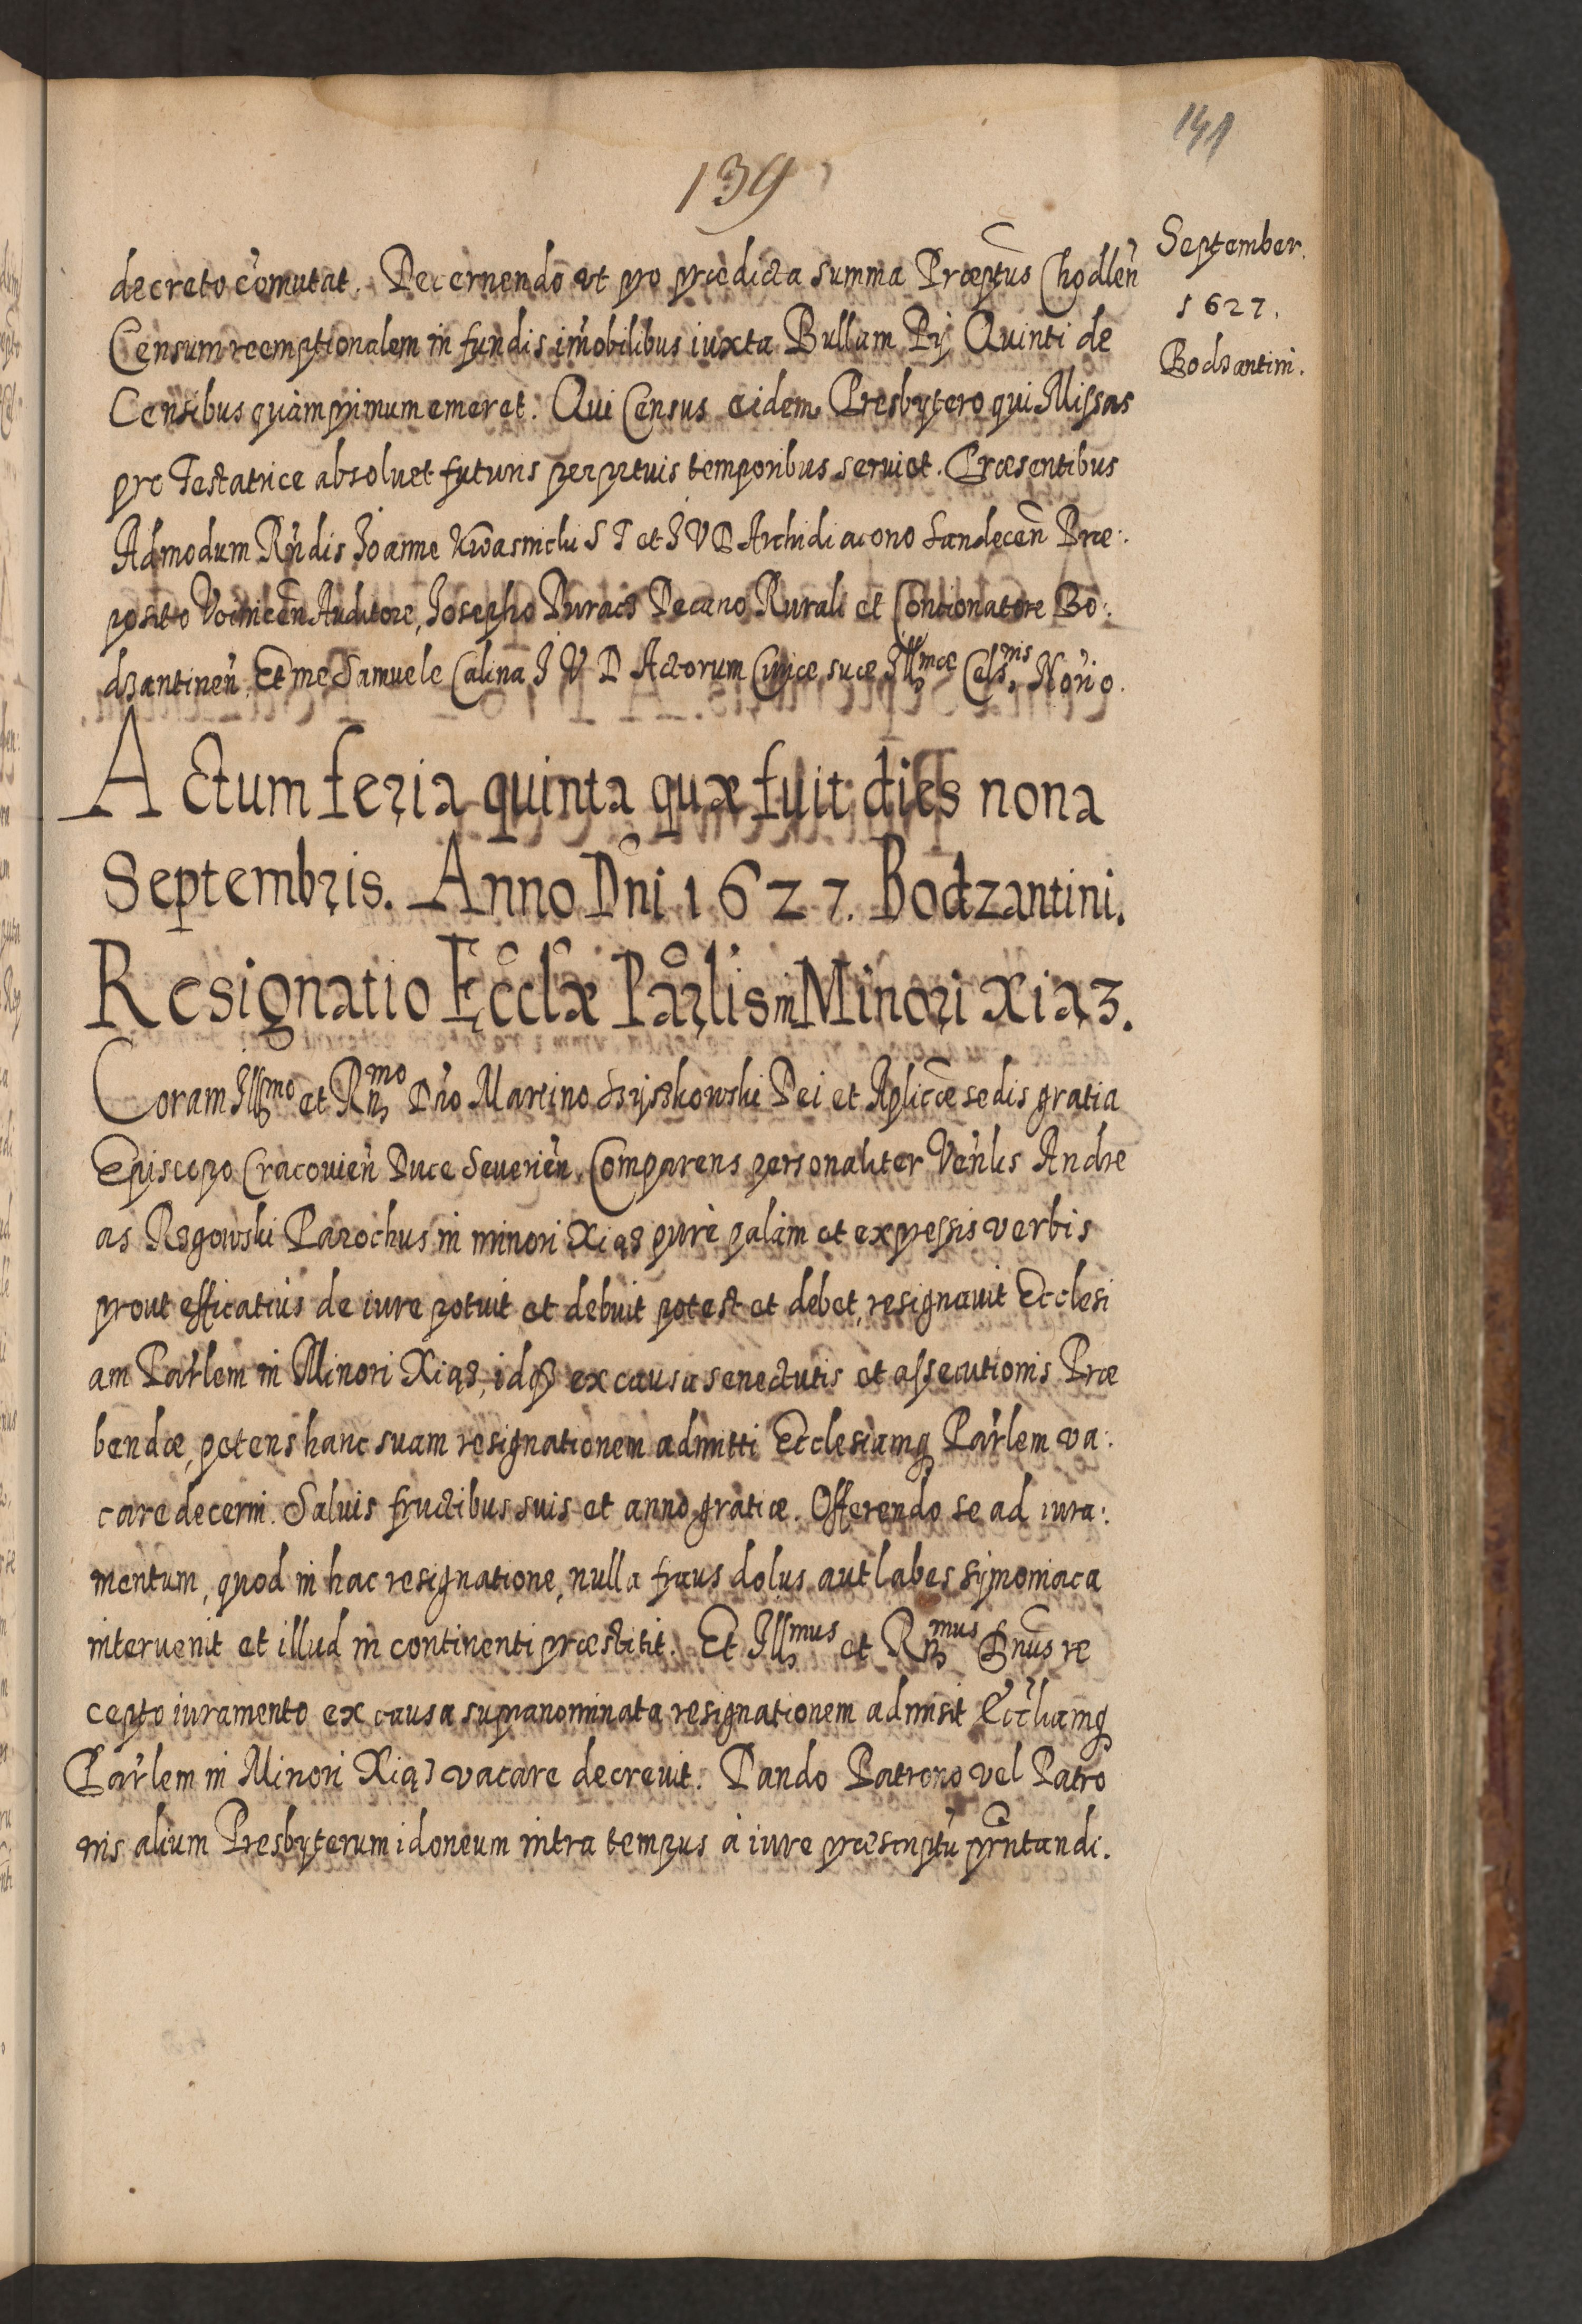 141
139
September.
1627.
Bodzantini.
decreto comutat. Decernendo ut pro prædicta summa Præptus Chodlen̄
Censum reemptionalem in fundis im̄obilibus iuxta Bullam Pij Quinti de
Censibus quàm primum emeret. Qui Census eidem Presbytero qui Missas
pro Testatrice absoluet futuris perpetuis temporibus seruiet. Præsentibus
Admodum Rn̄dis Joanne Kwasnicki S T et J V D Archidiacono Sandecen̄ Præ:
posito Voinicen̄ Auditore, Josepho Duracz Decano Rurali et Concionatore Bo:
dzantinen̄, Et me Samuele Calina J V D Actorum Curiæ suæ Illmæ Cels.nis Nōrio.
Actum feria quinta quæ fuit dies nona
Septembris. Anno Dn̄i 1627. Bodzantini.
Resignatio Eccl̄æ Par̄lis in Minori Xiąz.
Coram Illmo et Rn̄mo Dn̄o Martino Szyszkowski Dei et Aplicæ sedis gratia
Episcopo Cracovien̄ Duce Seuerien̄. Comparens personaliter Ven̄lis Andre
as Rzgowski Parochus in minori Xiąz purè palàm et expressis verbis
prout efficatius de iure potuit et debuit potest et debet, resignauit Ecclesi
am Par̄lem in Minori Xiąz, idq3 ex causa senectutis et assecutionis Præ
bendæ, petens hanc suam resignationem admitti Ecclesiamq Par̄lem va:
care decerni. Saluis fructibus suis et anno gratiæ. Offerendo se ad iura:
mentum, quod in hac resignatione, nulla fraus dolus aut labes symoniaca
interuenit et illud in continenti præstitit. Et Illmus et Rn̄mus Dn̄us re
cepto iuramento ex causa supranominata resignationem admisit Ecc̄liamq
Par̄lem in Minori Xiąz vacare decreuit. Dando Patrono vel Patro
nis alium Presbyterum idoneum intra tempus à iure præscriptū pn̄tandi.